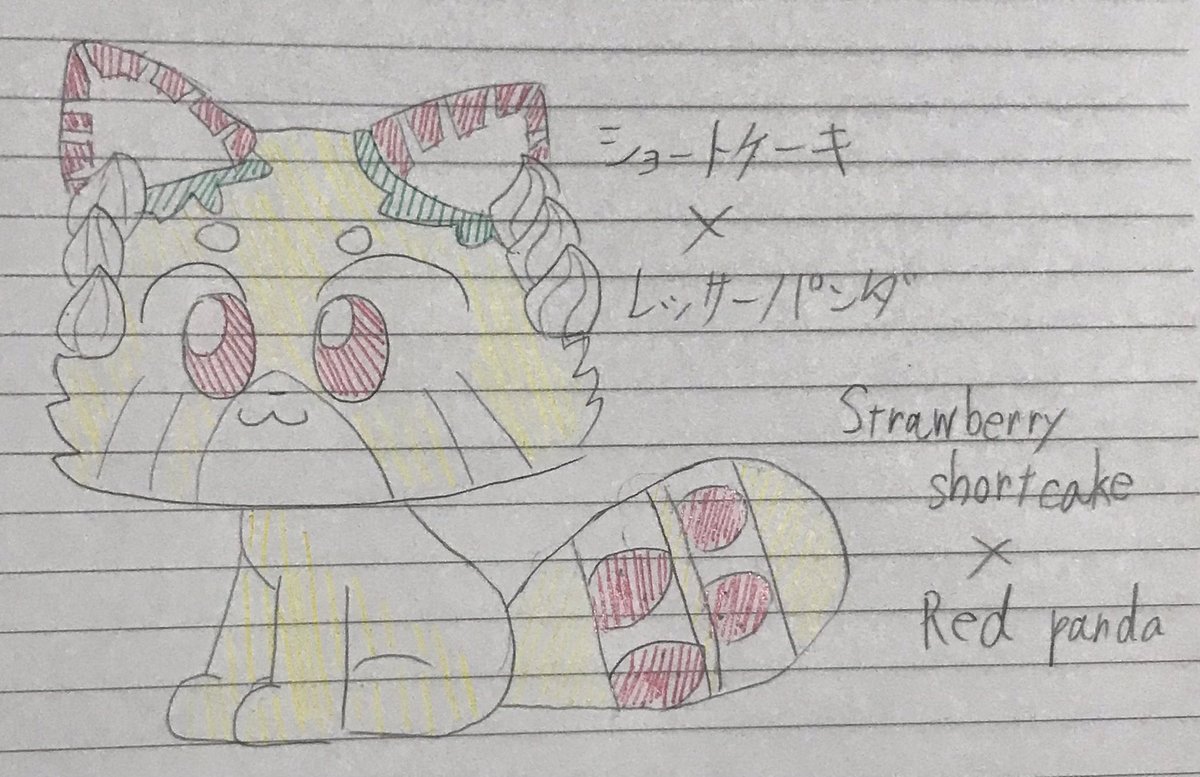 ショートケーキ
×
レッサーパンダ
Strawberry
shortcake
×
Red panda